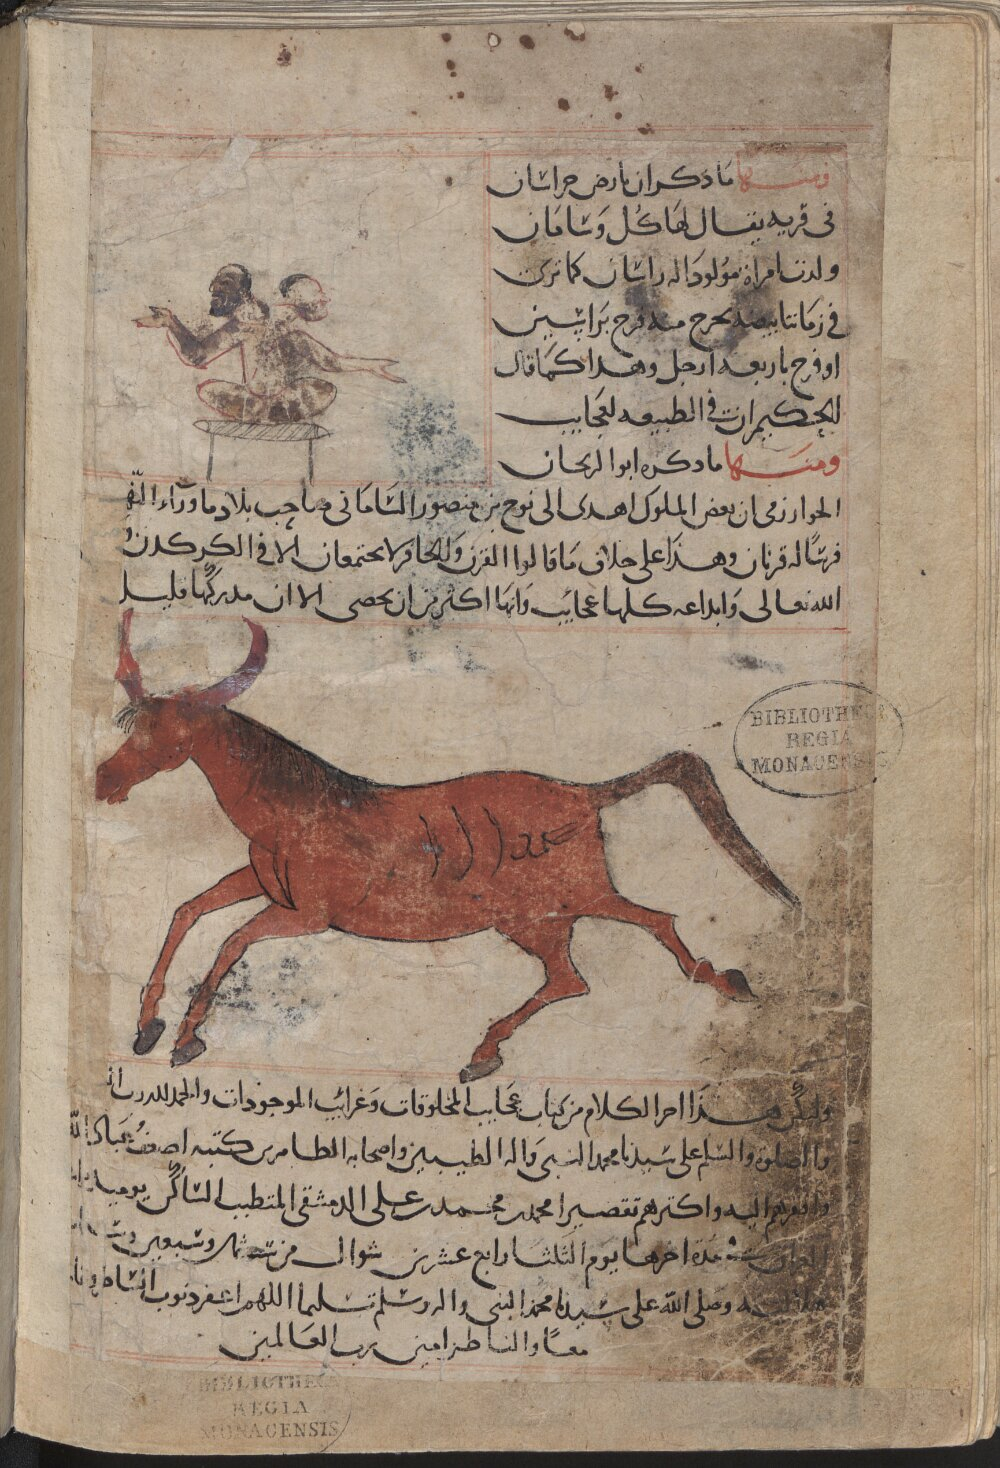 ومنها ما ذكر ان بارض خراسان
فى قرية يقال لها كل وشامان
ولدت امراة مولودا له راسان كما ترى
فى زماننا بيضه يخرج منه فرخ براسين
او فرخ باربعه ارجل وهدا كما قال
الحكيم ان فى الطبيعه لعجايب
ومنها ما دكره ابو الريحان
الخوارزمى ان بعض الملوك اهدى الى نوح بن منصور السامانى صاحب بلاد ماوراء النهر
فرسا له قرنان وهذا على خلاف ما قالوا القرن والحافر لا يجتمعان الا فى الكركدن
الله تعالى وابداعه كلها عجايب وانها اكثر من ان يحصى الا ان مدركها قليل
BIBLIOTHECA
REGIA
MONACENSIS
وليكن هذا اخر الكلام من كتاب عجايب المخلوقات وغرائب الموجودات والحمد لله رب
والصلوة والسلم على سيدنا محمد النبى واله الطيبين واصحابه الطاهرين كتبه اضعف عباد الله
وافقرهم اليه واكثرهم تقصيرا محمد بن محمد بن على الدمشقى المتطبب
اخرها يوم الثلثا رابع عشرين شوال من سنة ثمان وسبعين
وصلى الله على سيدنا محمد النبى واله وسلم تسليما اللهم اغفر ذنوب
معا والناظر امين يرب العالمين
BIBLIOTHECA
REGIA
MONACENSIS